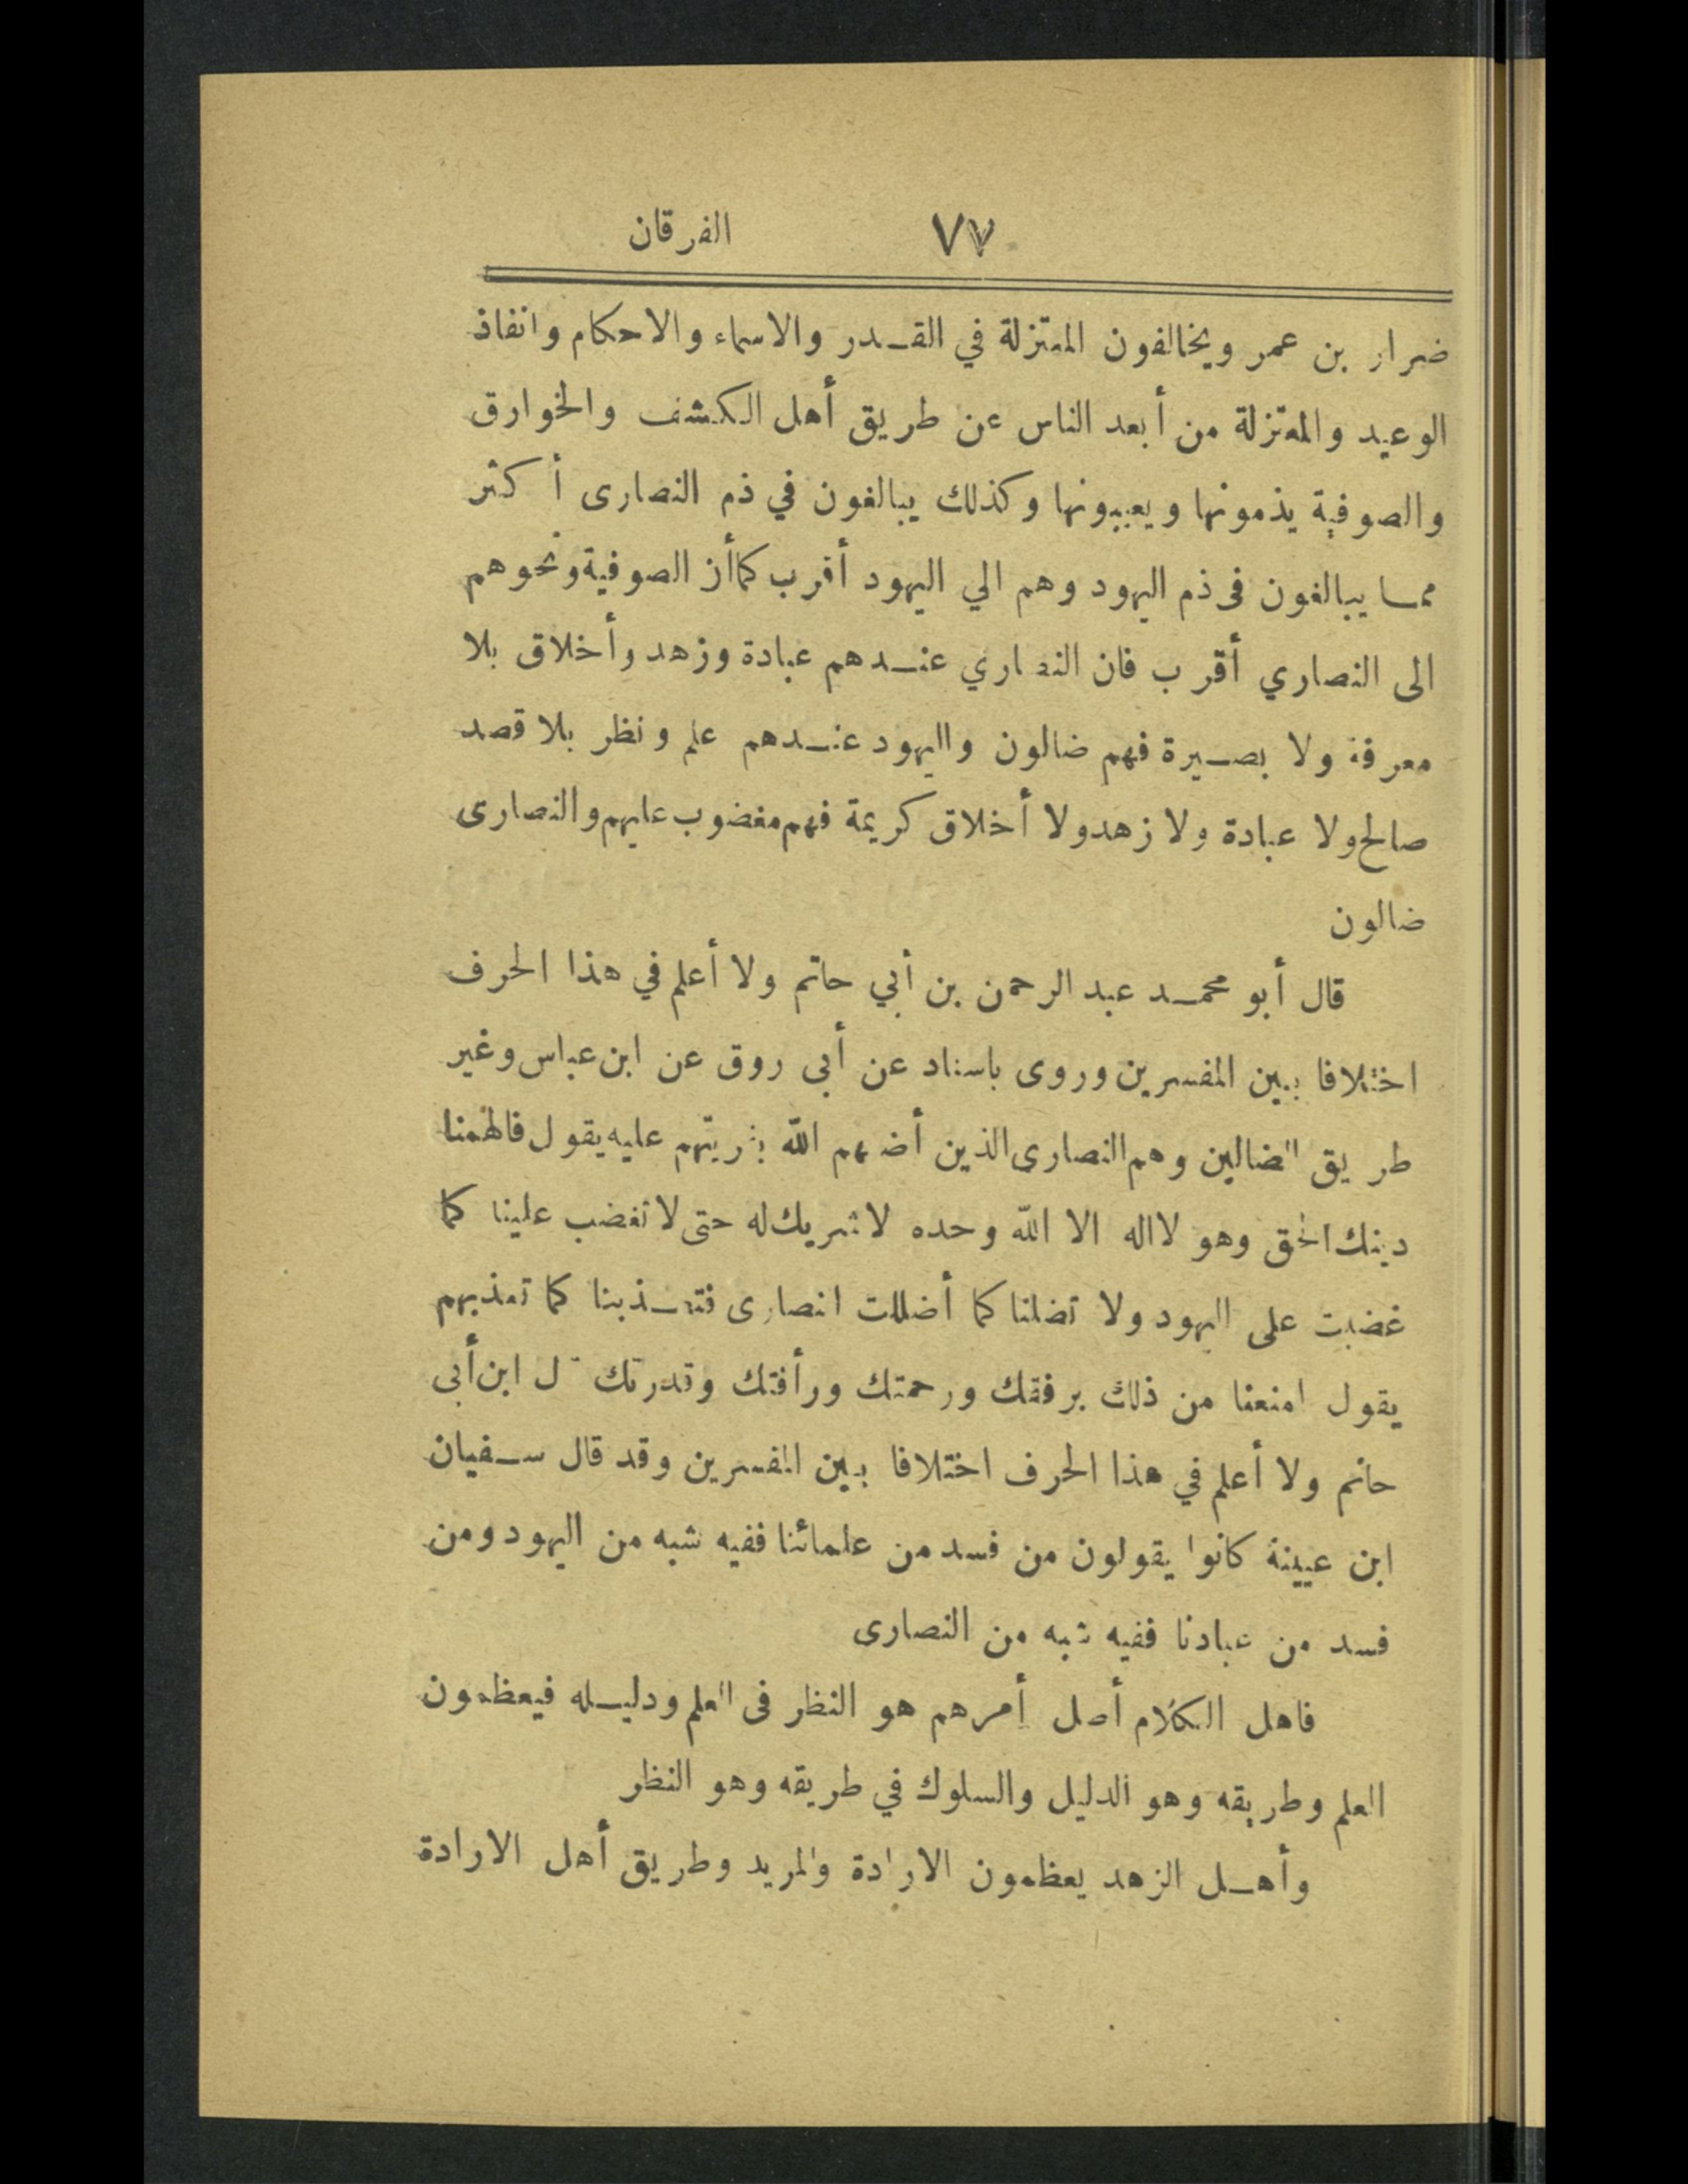 ٧٧ الفرقان
ضرار بن عمر ويخالفون المعتزلة في القدر والاسماء والاحكام وانفاذ
الوعيد والمعتزلة من أبعد الناس عن طريق أهل الكشف والخوارق
والصوفية يذمونها ويعيبونها وكذلك يبالغون في ذم النصارى أكثر
مما يبالغون فى ذم اليهود وهم الي اليهود أقرب كما أن الصوفية ونحوهم
الى النصاري أقرب فان النصاري عندهم عبادة وزهد وأخلاق بلا
معرفة ولا بصيرة فهم ضالون واليهود عندهم علم ونظر بلا قصد
صالح ولا عبادة ولا زهد ولا أخلاق كريمة فهم مغضوب عليهم والنصارى
ضالون
قال أبو محمد عبد الرحمن بن أبي حاتم ولا أعلم في هذا الحرف
اختلافا بين المفسرين وروى باسناد عن أبى روق عن ابن عباس وغير
طريق الضالين وهم النصارى الذين أضلهم الله بفريتهم عليه يقول فالهمنا
دينك الحق وهو لااله الا الله وحده لا شريك له حتى لا تغضب علينا كما
غضبت على اليهود ولا تضلنا كما أضللت النصارى فتعذبنا كما تعذبهم
يقول امنعنا من ذلك برفقك ورحمتك ورأفتك وقدرتك قال ابن أبى
حاتم ولا أعلم في هذا الحرف اختلافا بين المفسرين وقد قال سفيان
ابن عيينة كانوا يقولون من فسد من علمائنا ففيه شبه من اليهود ومن
فسد من عبادنا ففيه شبه من النصارى
فاهل الكلام أصل أمرهم هو النظر فى العلم ودليله فيعظمون
العلم وطريقه وهو الدليل والسلوك في طريقه وهو النظر
وأهل الزهد يعظمون الارادة والمريد وطريق أهل الارادة